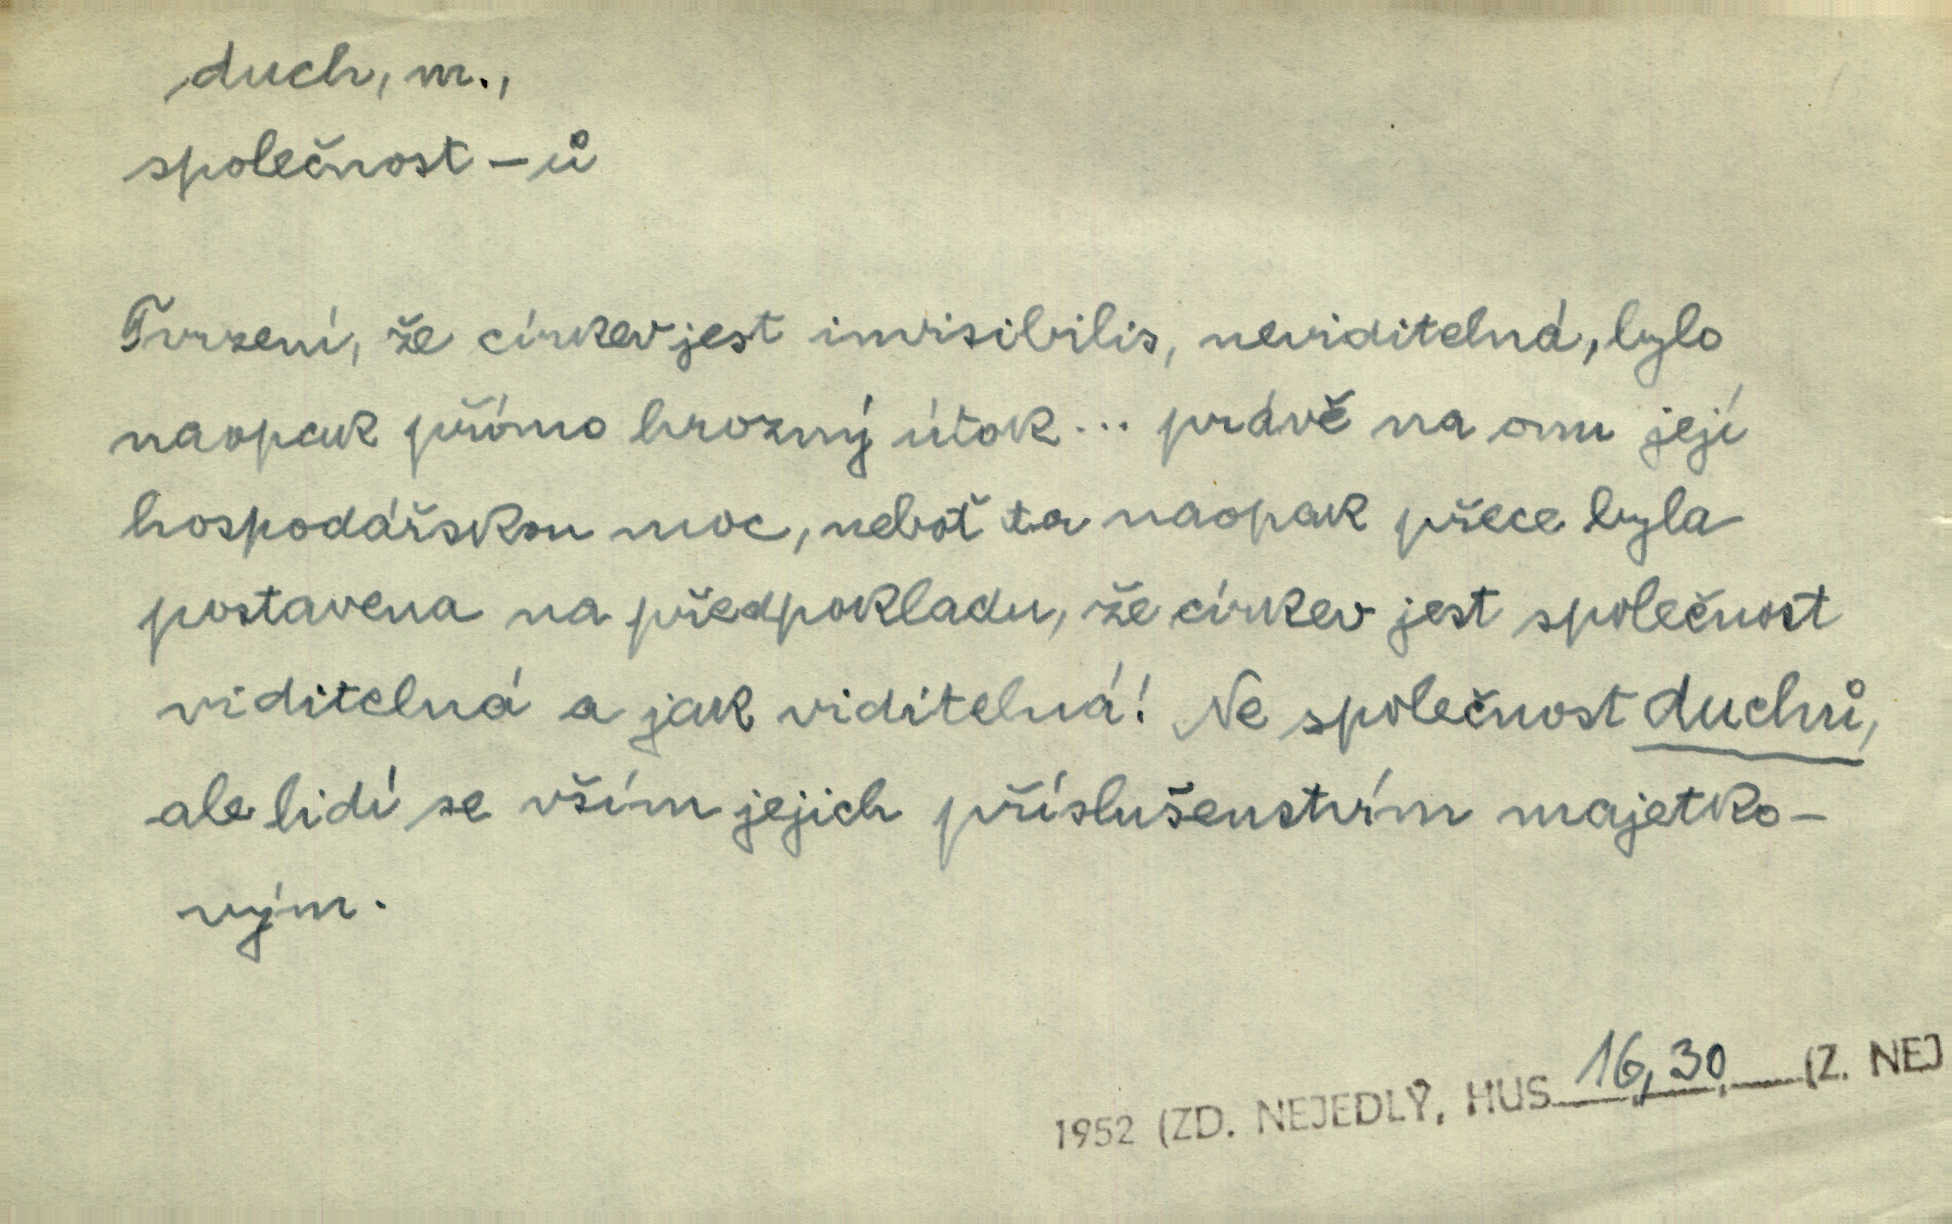 duch, m.,
společnost – ů
Tvrzení, že církev jest invisibilis, neviditelná, bylo
naopak přímo hrozný útok... právě na onu její
hospodářskou moc, neboť ta naopak přece byla
postavena na předpokladu, že církev jest společnost
viditelná a jak viditelná! Ne společnost duchů,
ale lidí se vším jejich příslušenstvím majetko-
vým.
1952 (ZD. NEJEDLÝ, HUS 16, 30, (Z. NEJ